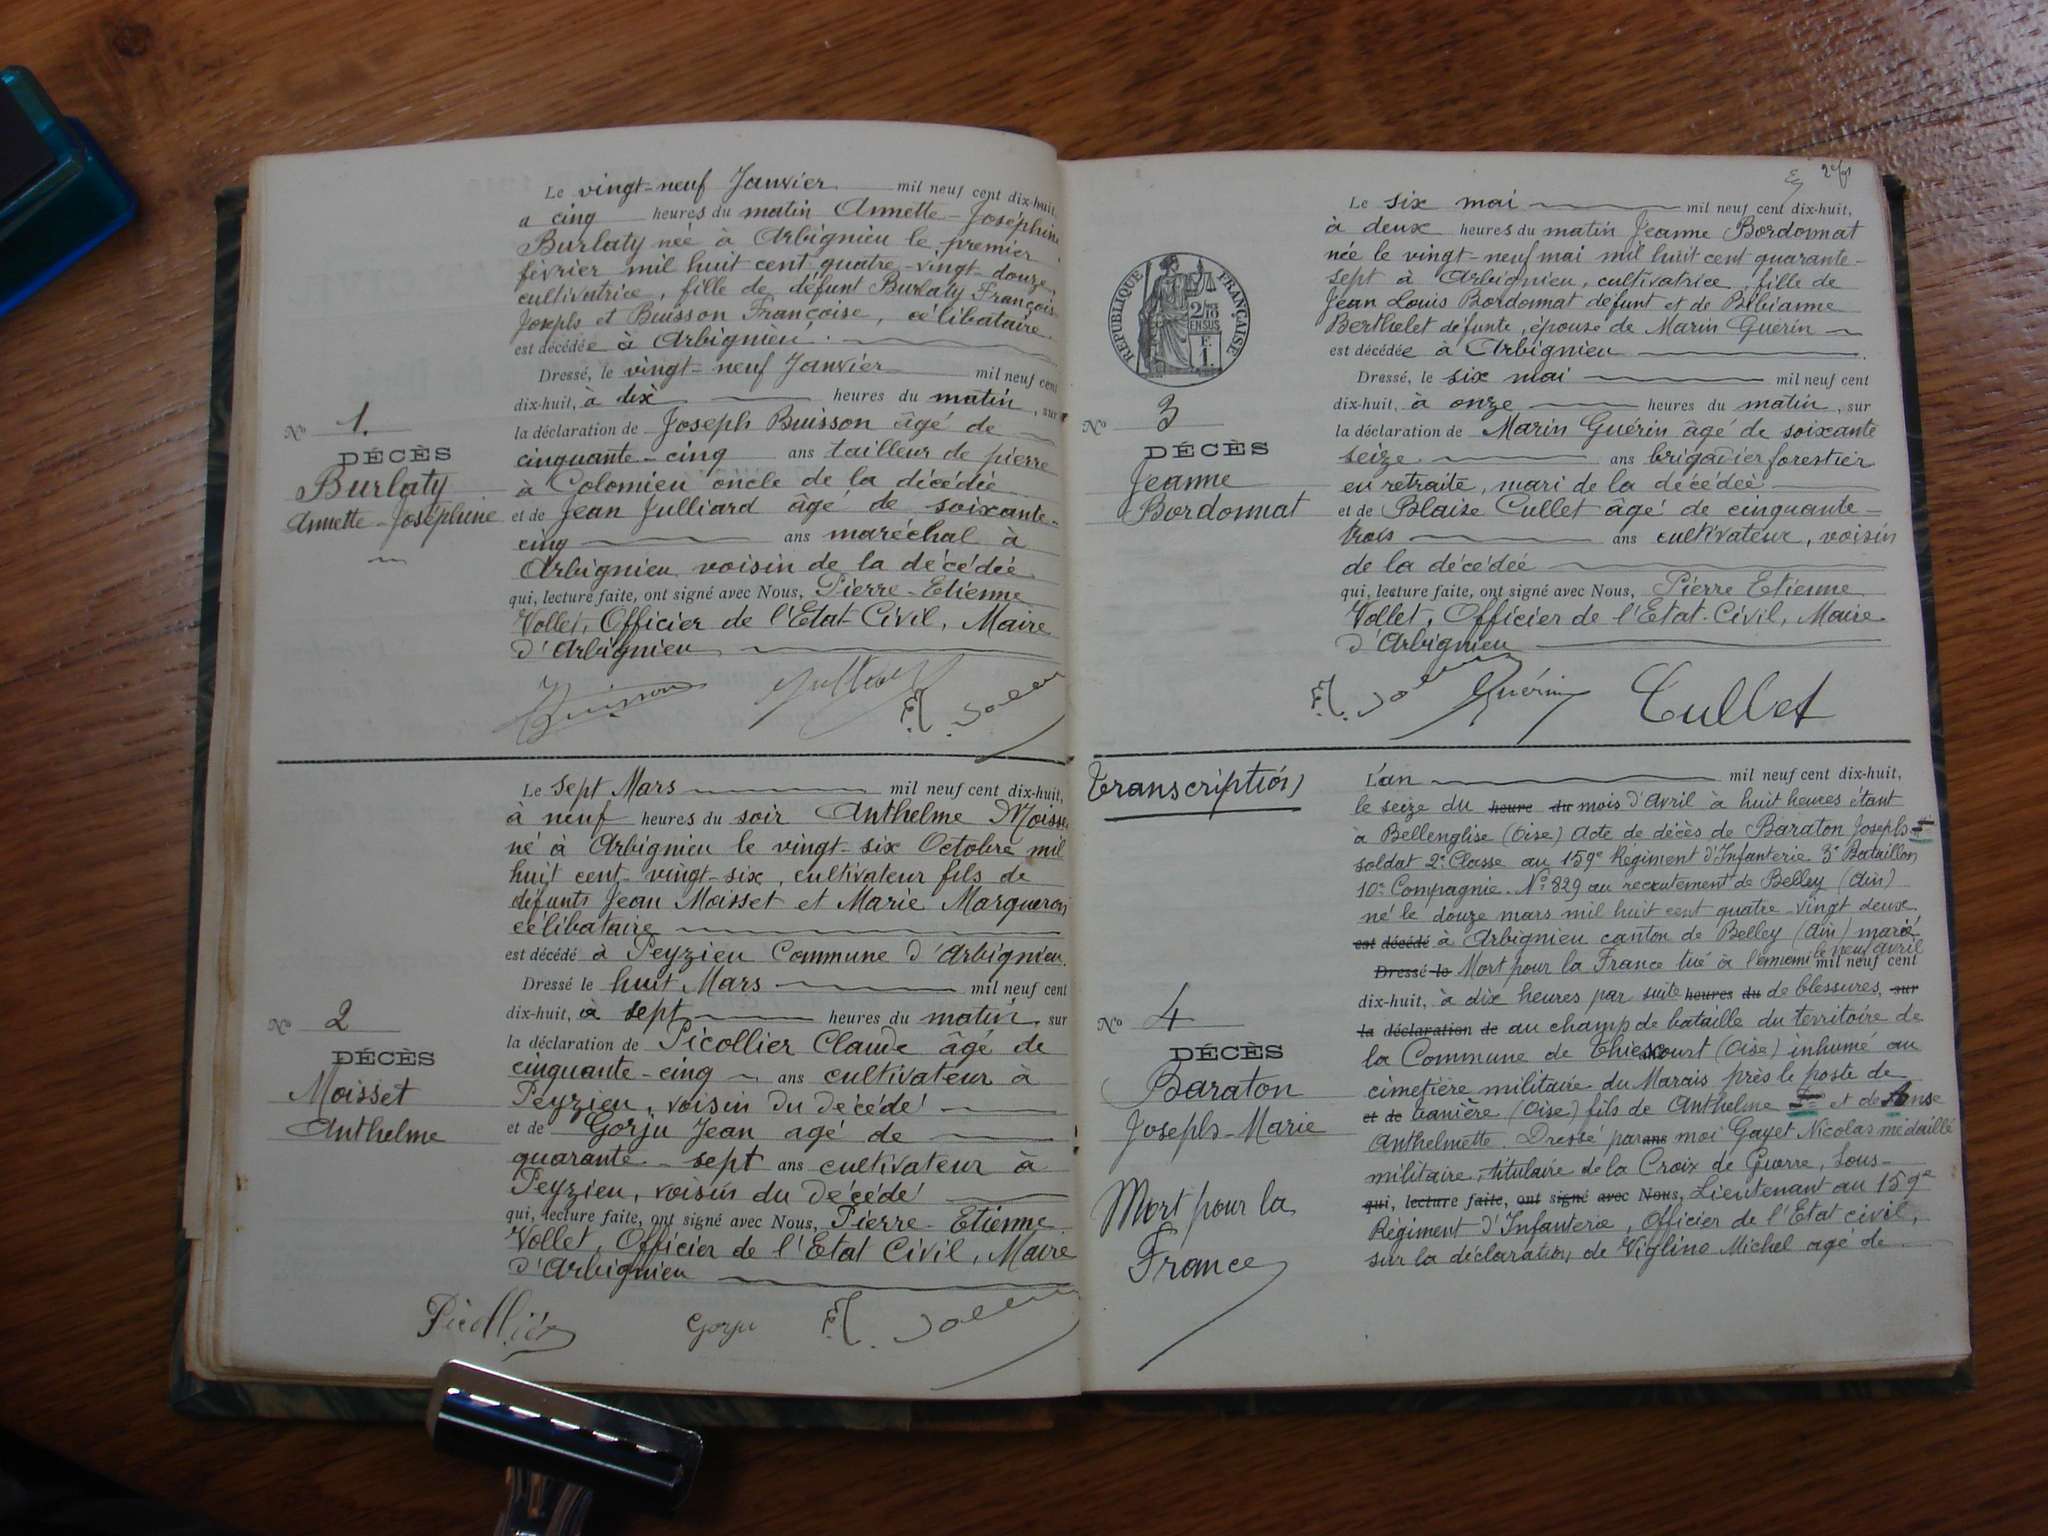 Le vingt-neuf Janvier mil neuf cent dix-huit,
a cinq heures du matin Annette-Joséphine
Burlaty née à Arbignieu le premier
février mil huit cent quatre-vingt-douze,
cultivatrice, fille de défunt Burlaty François
Joseph et Buisson Françoise, célibataire
est décédée à Arbignieu.
Dressé, le vingt-neuf Janvier mil neuf cent
dix-huit, à dix heures du matin, sur
la déclaration de Joseph Buisson âgé de
cinquante-cinq ans tailleur de pierre
à Colomieu oncle de la décédée
et de Jean Julliard âgé de soixante-
cinq ans maréchal à
Arbignieu voisin de la décédée
qui, lecture faite, ont signé avec Nous, Pierre-Etienne
Vollet, Officier de l'Etat-Civil, Maire
d'Arbignieu
Nº 1.
DÉCÈS
Burlaty
Annette-Joséphine
Buisson
Le sept Mars mil neuf cent dix-huit,
à neuf heures du soir Anthelme Moisset
né à Arbignieu le vingt-six Octobre mil
huit cent-vingt-six, cultivateur fils de
défunts Jean Moisset et Marie Marqueron
célibataire
est décédé à Peyzieu Commune d'Arbignieu.
Dressé le huit Mars mil neuf cent
dix-huit, à sept heures du matin, sur
la déclaration de Picollier Claude âgé de
cinquante-cinq ans cultivateur à
Peyzieu, voisin du décédé
et de Gorju Jean agé de
quarante-sept ans cultivateur à
Peyzieu, voisin du décédé
qui, lecture faite, ont signé avec Nous, Pierre-Etienne
Vollet, Officier de l'Etat Civil, Maire
d'Arbignieu
Nº 2
DÉCÈS
Moisset
Anthelme
Picollier Gorju
RÉPUBLIQUE FRANÇAISE
2/10
EN SUS
F.
1.
Le six mai mil neuf cent dix-huit,
à deux heures du matin Jeanne Bordonnat
née le vingt-neuf mai mil huit cent quarante-
sept à Arbignieu, cultivatrice, fille de
Jean Louis Bordonnat défunt et de Bibianne
Berthelet défunte, épouse de Marin Guérin
est décédée à Arbignieu
Dressé, le six mai mil neuf cent
dix-huit, à onze heures du matin, sur
la déclaration de Marin Guérin âgé de soixante
seize ans brigadier forestier
en retraite, mari de la décédée
et de Blaise Cullet âgé de cinquante-
trois ans cultivateur, voisin
de la décédée
qui, lecture faite, ont signé avec Nous, Pierre Etienne
Vollet, Officier de l'Etat-Civil, Maire
d'Arbignieu
Nº 3
DÉCÈS
Jeanne
Bordonnat
Guérin Cullet
Transcription
L'an mil neuf cent dix-huit,
le seize du heure du mois d'Avril à huit heures étant
à Bellenglise (Oise) Acte de décès de Baraton Joseph
soldat 2e Classe au 159e Régiment d'Infanterie 3e Bataillon
10e Compagnie. Nº 829 au recrutement de Belley (Ain)
né le douze mars mil huit cent quatre-vingt deux
est décédé à Arbignieu canton de Belley (Ain) marié
le neuf avril
Dressé le Mort pour la France tué à l'ennemi mil neuf cent
dix-huit, à dix heures par suite heures du de blessures, sur
la déclaration de au champ de bataille du territoire de
la Commune de Thiescourt (Oise) inhumé au
cimetière militaire du Marais près le poste de
et de (Oise) fils de Anthelme et de Anse
Anthelmette. Dressé par ans moi Gayet Nicolas médaillé
militaire, titulaire de la Croix de Guerre, Sous-
qui, lecture faite, ont signé avec Nous, Lieutenant au 159e
Régiment d'Infanterie, Officier de l'Etat civil,
sur la déclaration de Viglino Michel agé de
Nº 4
DÉCÈS
Baraton
Joseph-Marie
Mort pour la
France